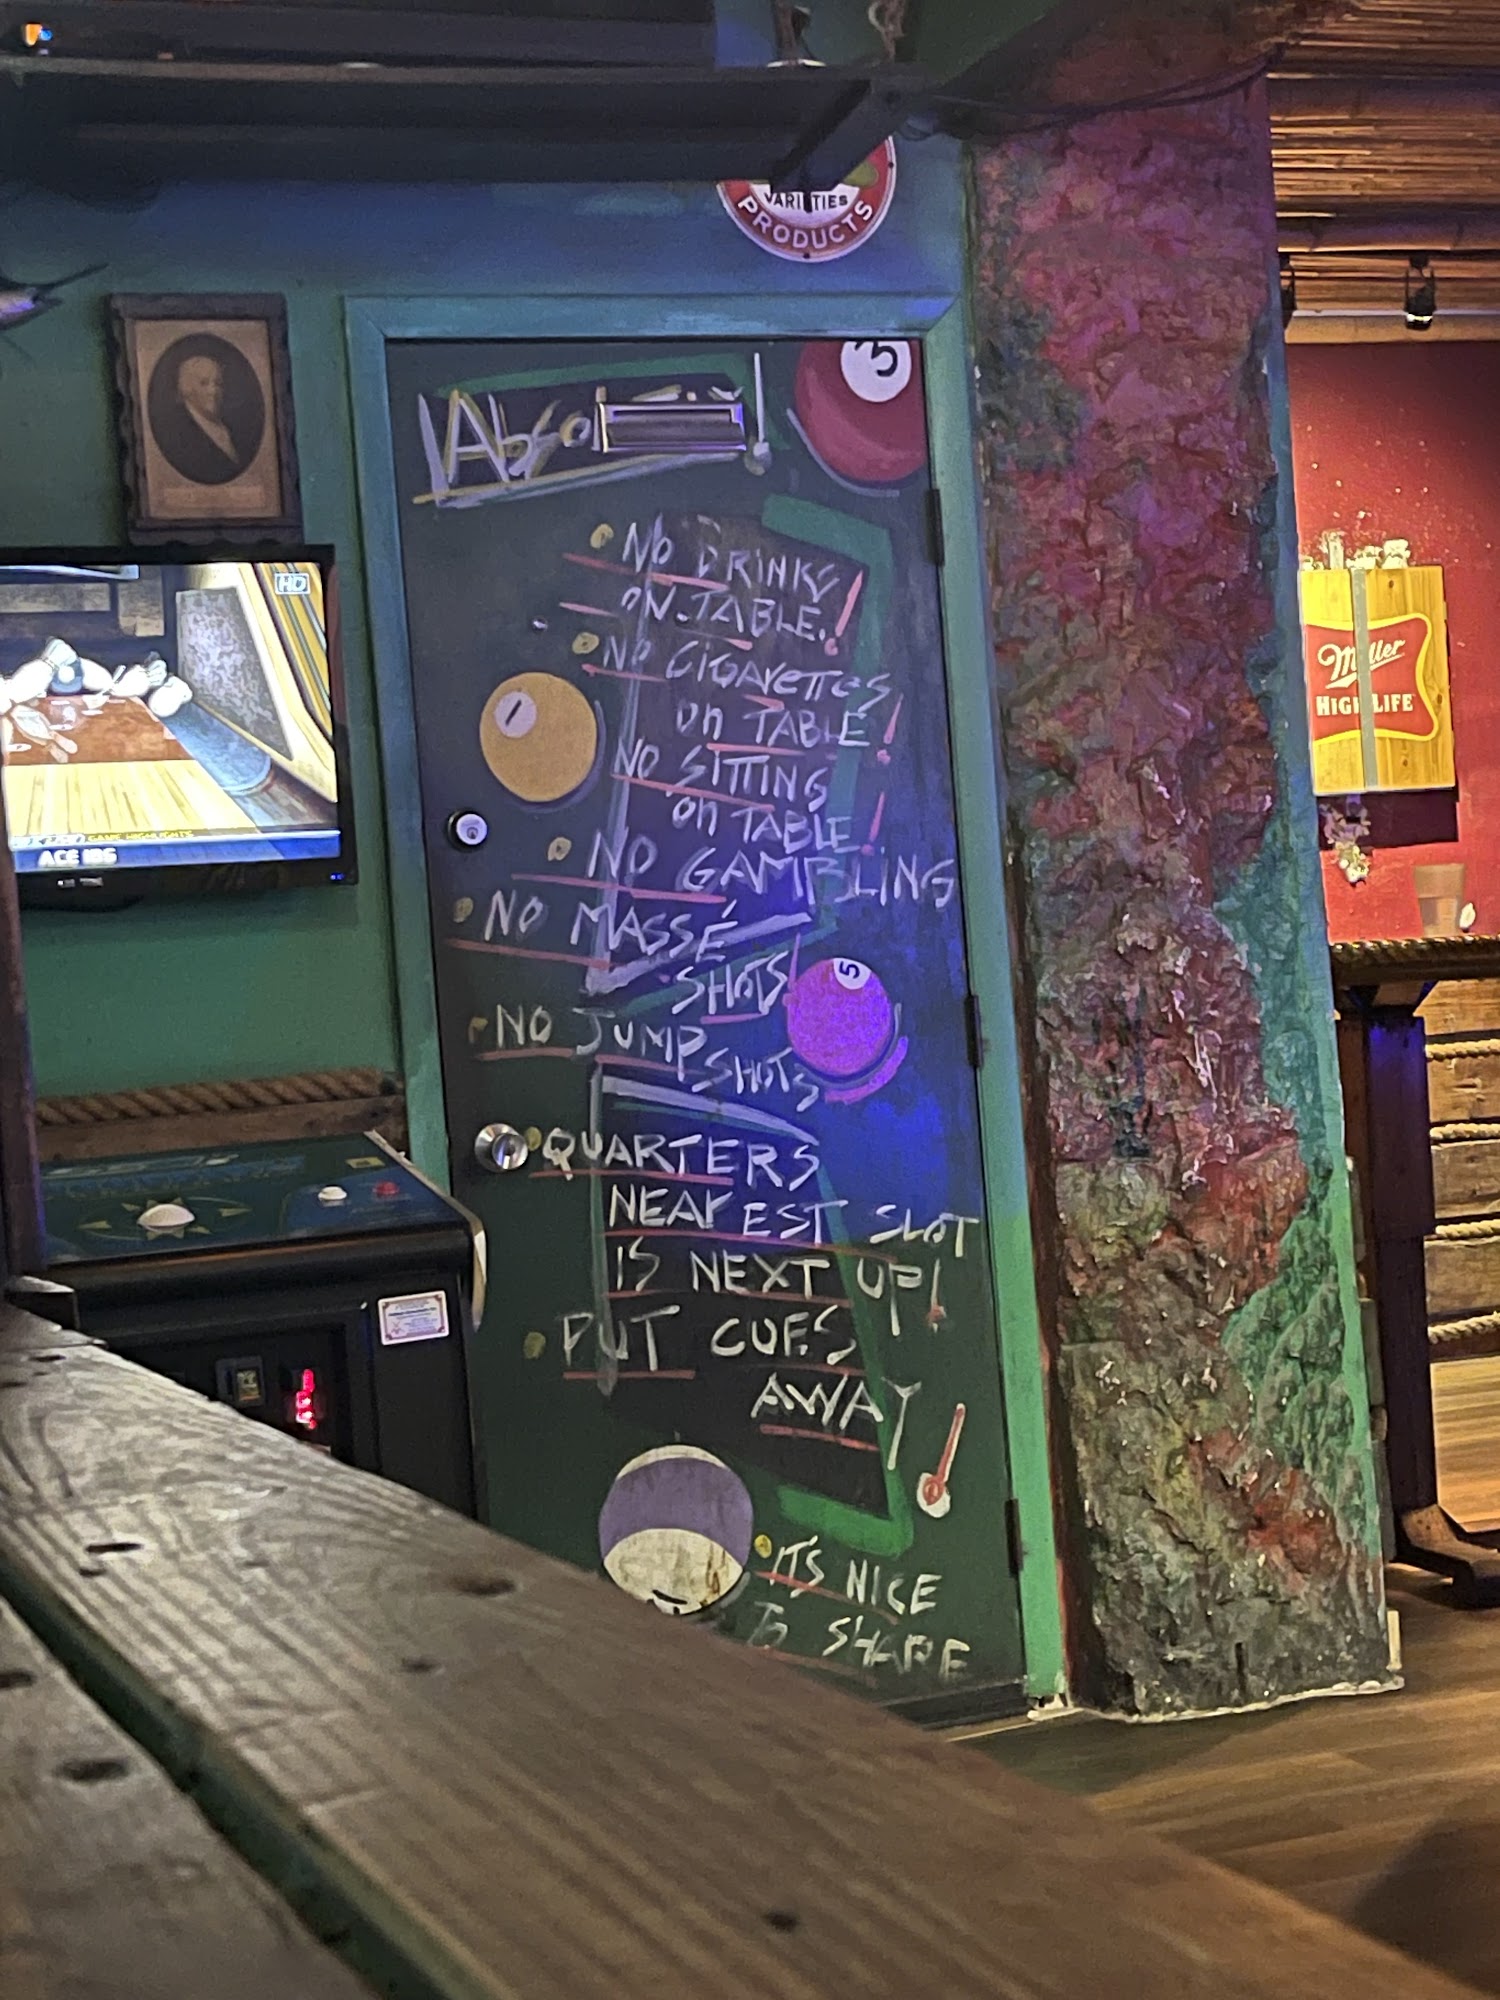 VARIETIES
PRODUCTS
3
NO DRINKS
ON TABLE!
NO CIGARETTES
on TABLE!
NO SITTING
on TABLE!
1
NO GAMBLING
NO MASSÉ
SHOTS!
5
NO JUMP
SHOTS
QUARTERS
NEAREST SLOT
IS NEXT UP!
PUT CUES
AWAY!
IT'S NICE
To SHARE
HD
GAME HIGHLIGHTS
ACE 105
Miller
HIGH LIFE